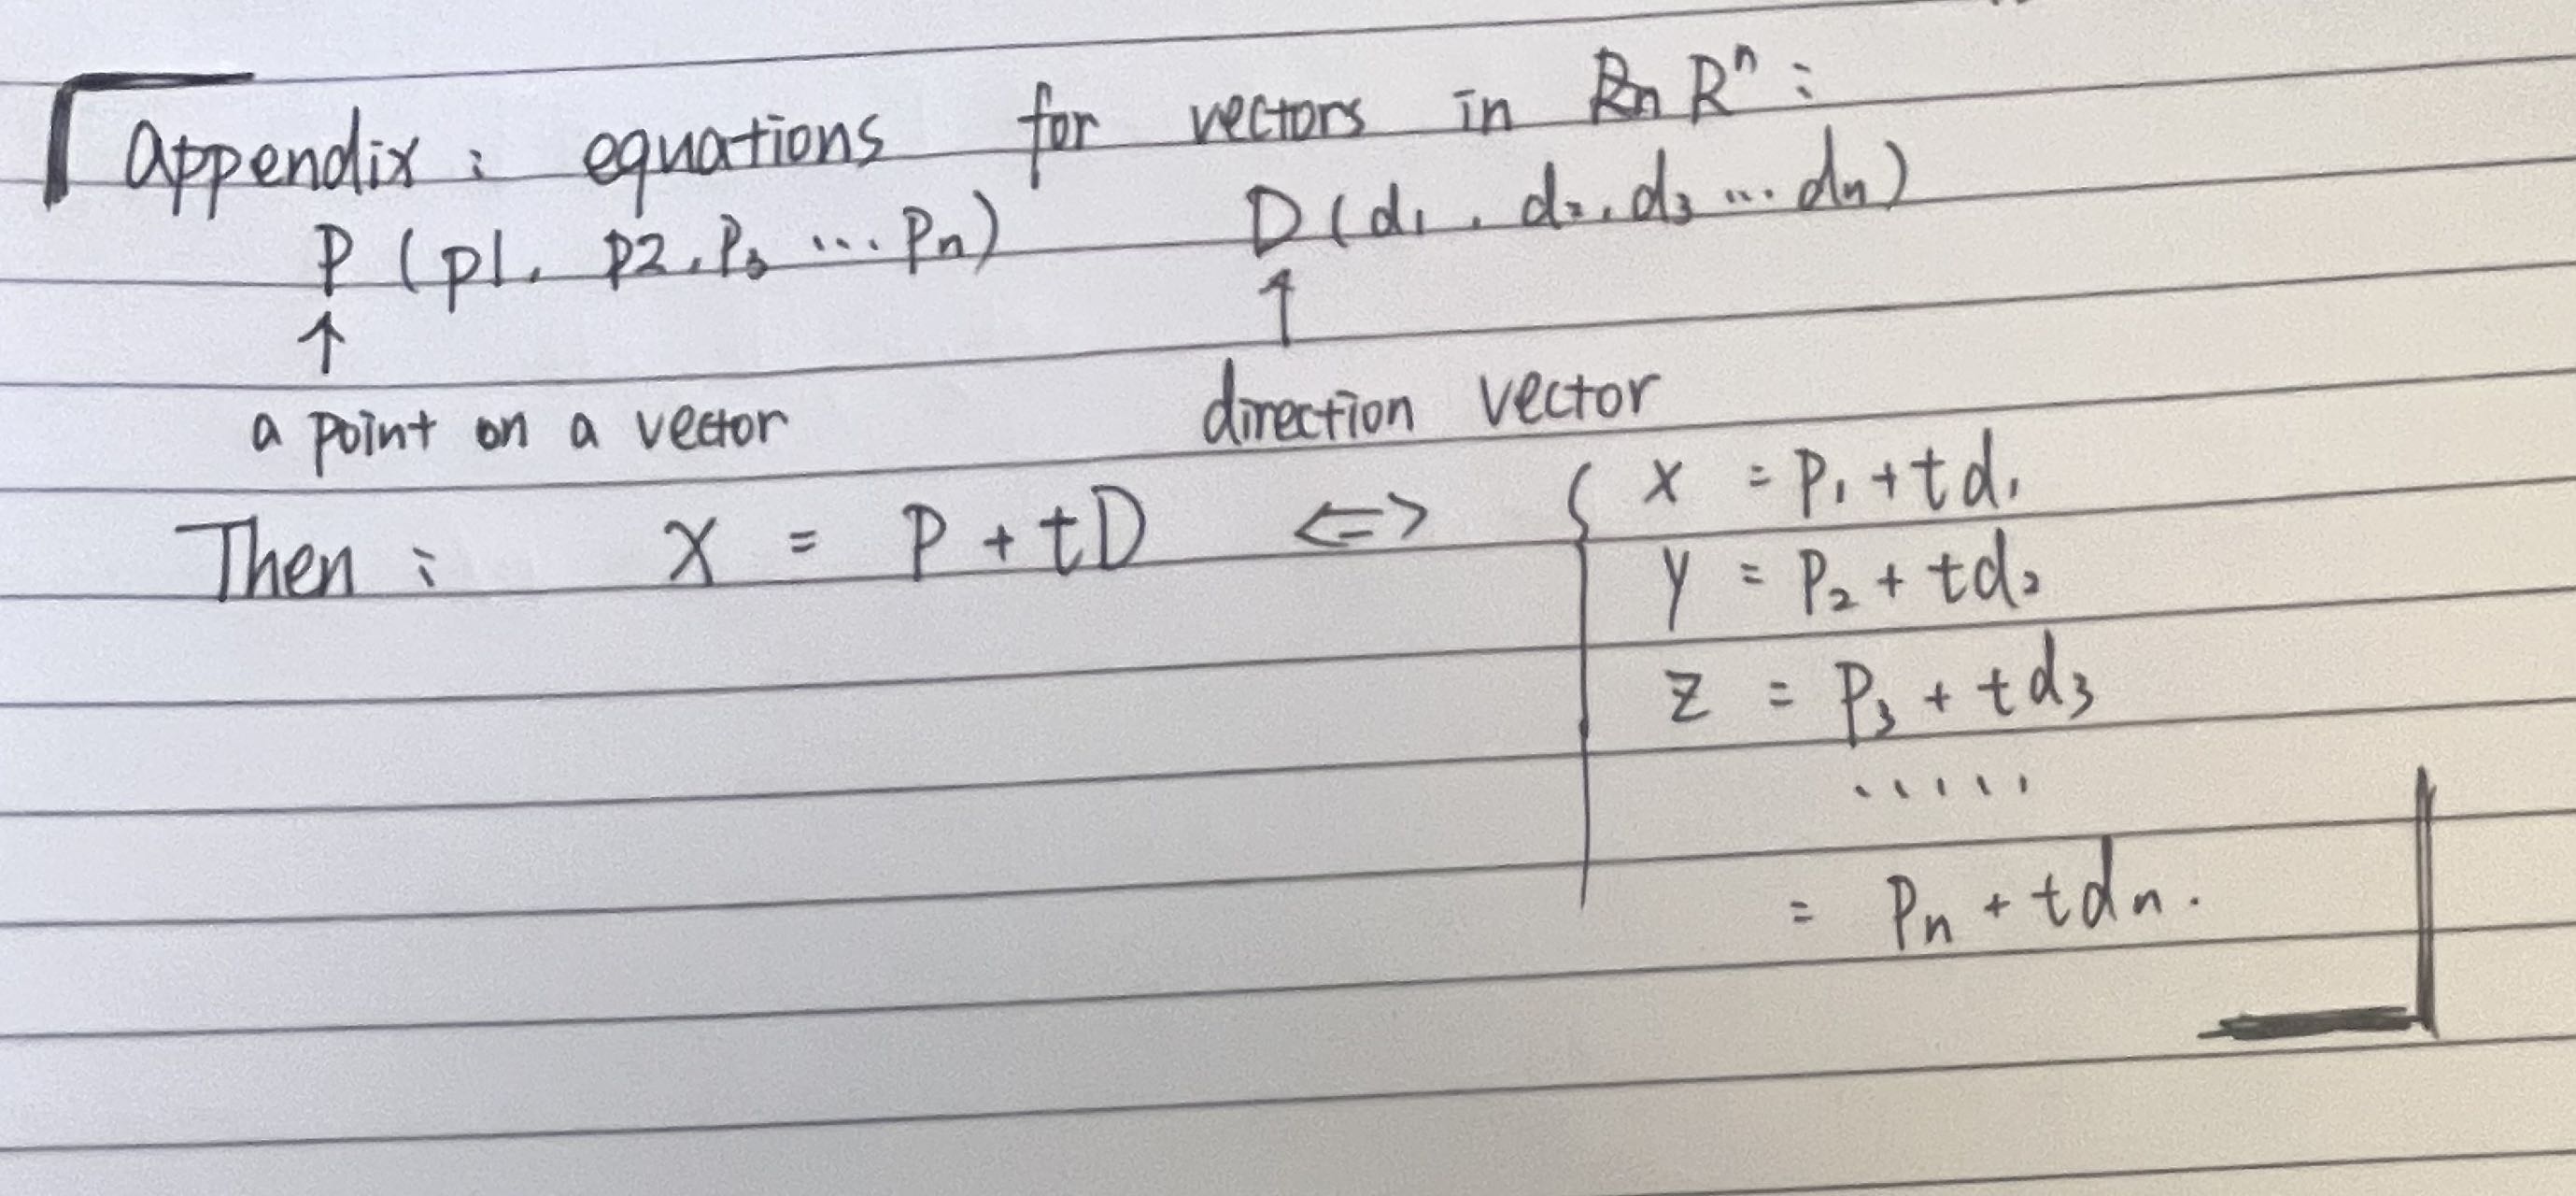 Appendix: equations for vectors in Rn Rⁿ:
P (p1, p2, P₃ ... Pn) D (d₁, d₂, d₃ ... dn)
↑ ↑
a point on a vector direction vector
Then: X = P + tD <=> { x = P₁ + td₁
y = P₂ + td₂
z = P₃ + td₃
.....
= Pn + tdn.